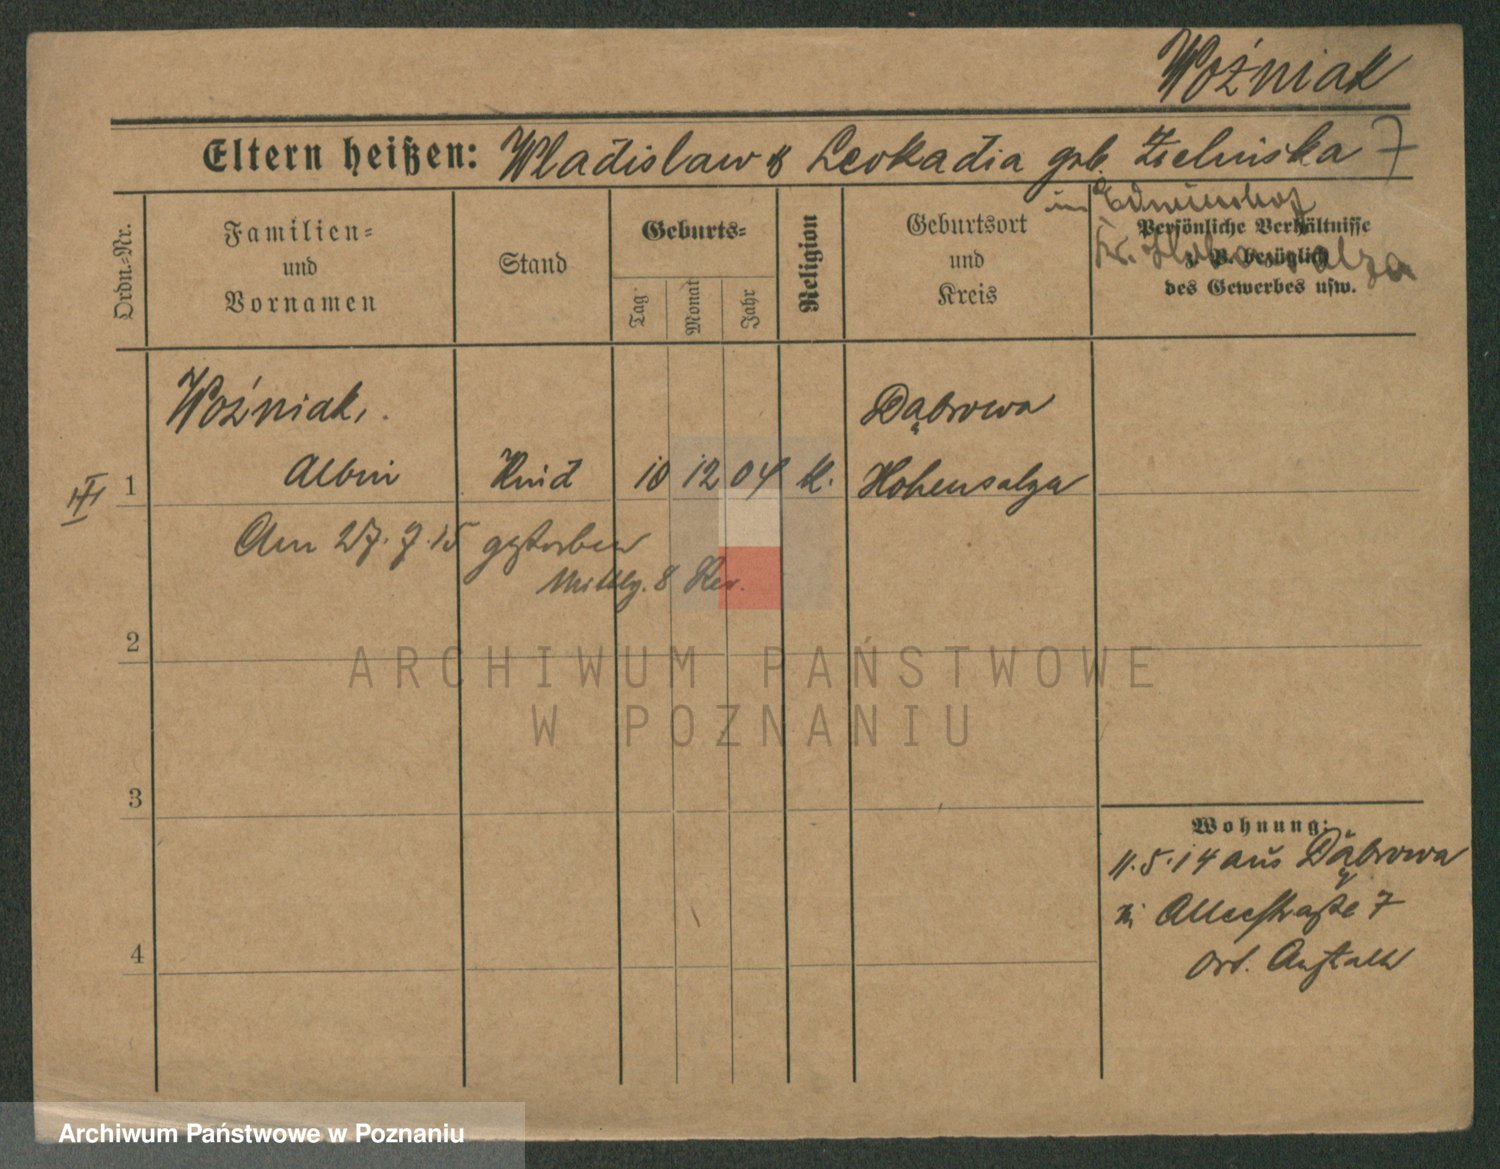 Woźniak
Eltern heißen: Wladislaw & Leokadia geb. Zielinska 7
in Edmundhof
Kr. Hohensalza
Ordn.-Nr.
Familien-
und
Vornamen
Stand
Geburts-
Tag
Monat
Jahr
Religion
Geburtsort
und
Kreis
Persönliche Verhältnisse
z. B. bezüglich
des Gewerbes usw.
Woźniak,
Dąbrowa
III
1 Albin Kind 10 12 04 k. Hohensalza
Am 27. 7. 15 gestorben
Mittlg. 8 Rev.
2
3
4
Wohnung:
11.5.14 aus Dąbrowa
Alleestraße 7
ort. Anstalt
ARCHIWUM PAŃSTWOWE
W POZNANIU
Archiwum Państwowe w Poznaniu